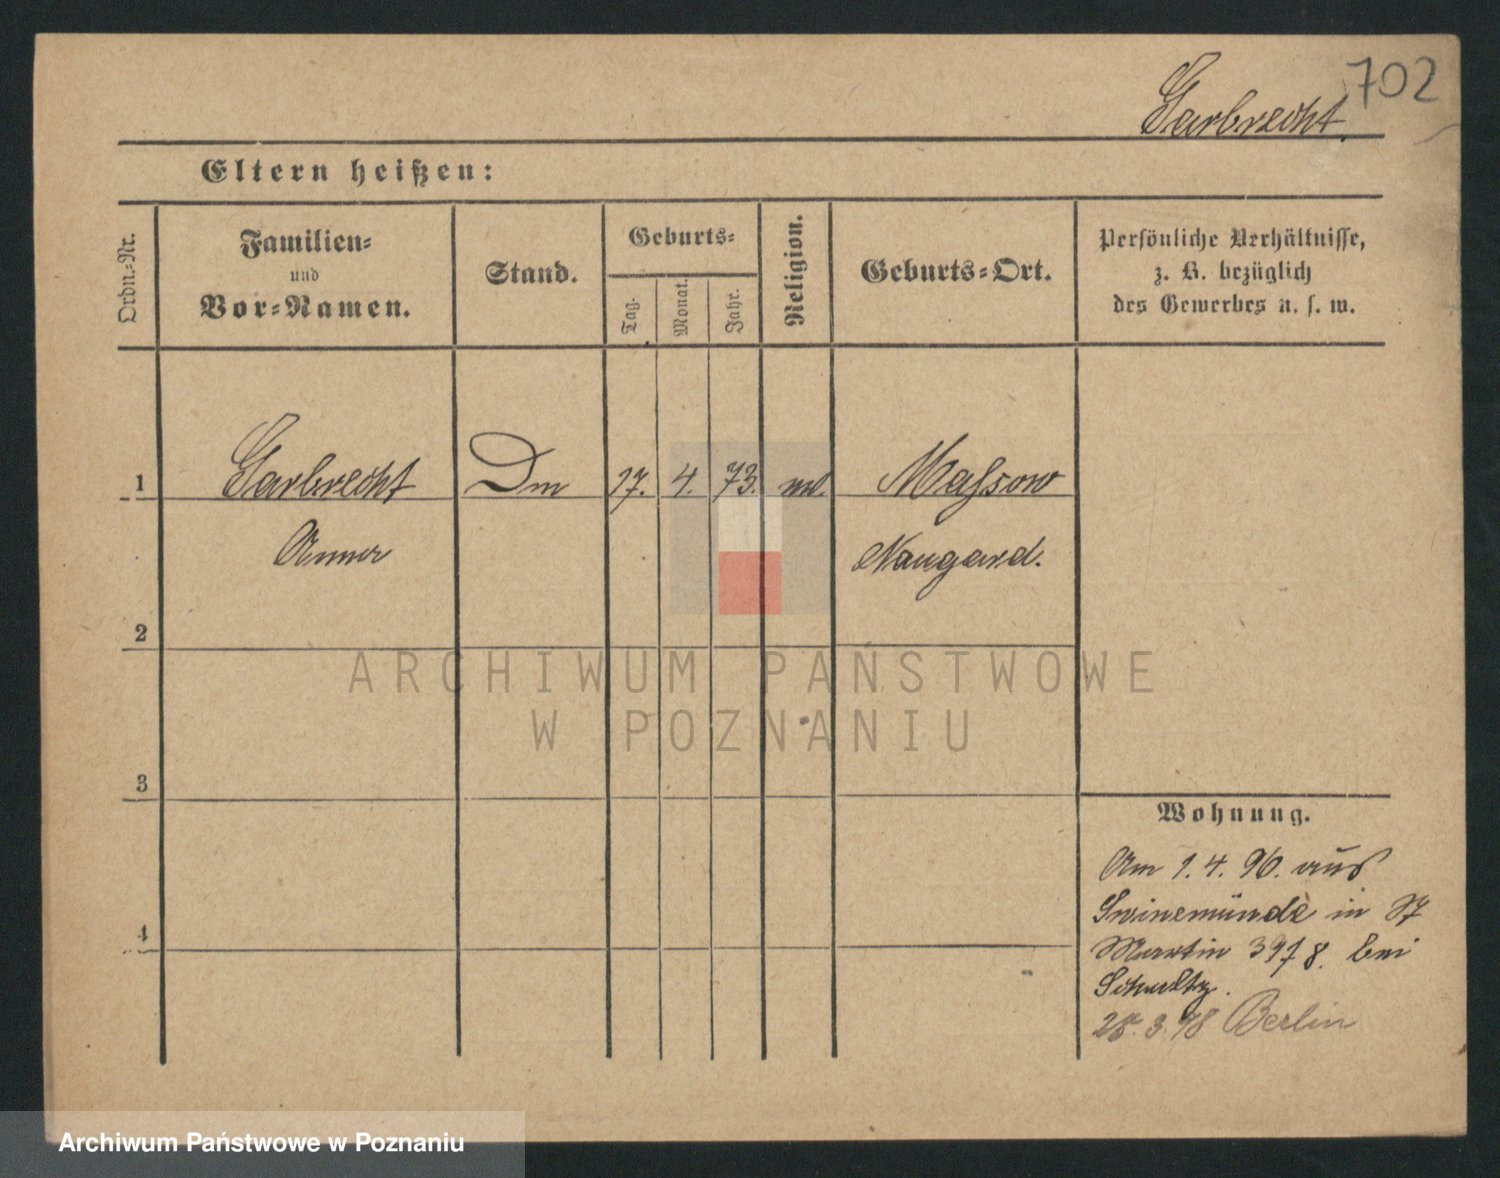 702
Garbrecht.
Eltern heißen:
Ordn.-Nr.
Familien-
und
Vor-Namen.
Stand.
Geburts-
Tag.
Monat.
Jahr.
Religion.
Geburts-Ort.
Persönliche Verhältnisse,
z. B. bezüglich
des Gewerbes u. s. w.
1 Garbrecht 17. 4. 73. Massow
Anna Naugard.
2
3
4
Wohnung.
Am 1. 4. 96. aus
Swinemünde in St
Martin bei
Schultz.
28. 3. 98 Berlin
ARCHIWUM PAŃSTWOWE
W POZNANIU
Archiwum Państwowe w Poznaniu